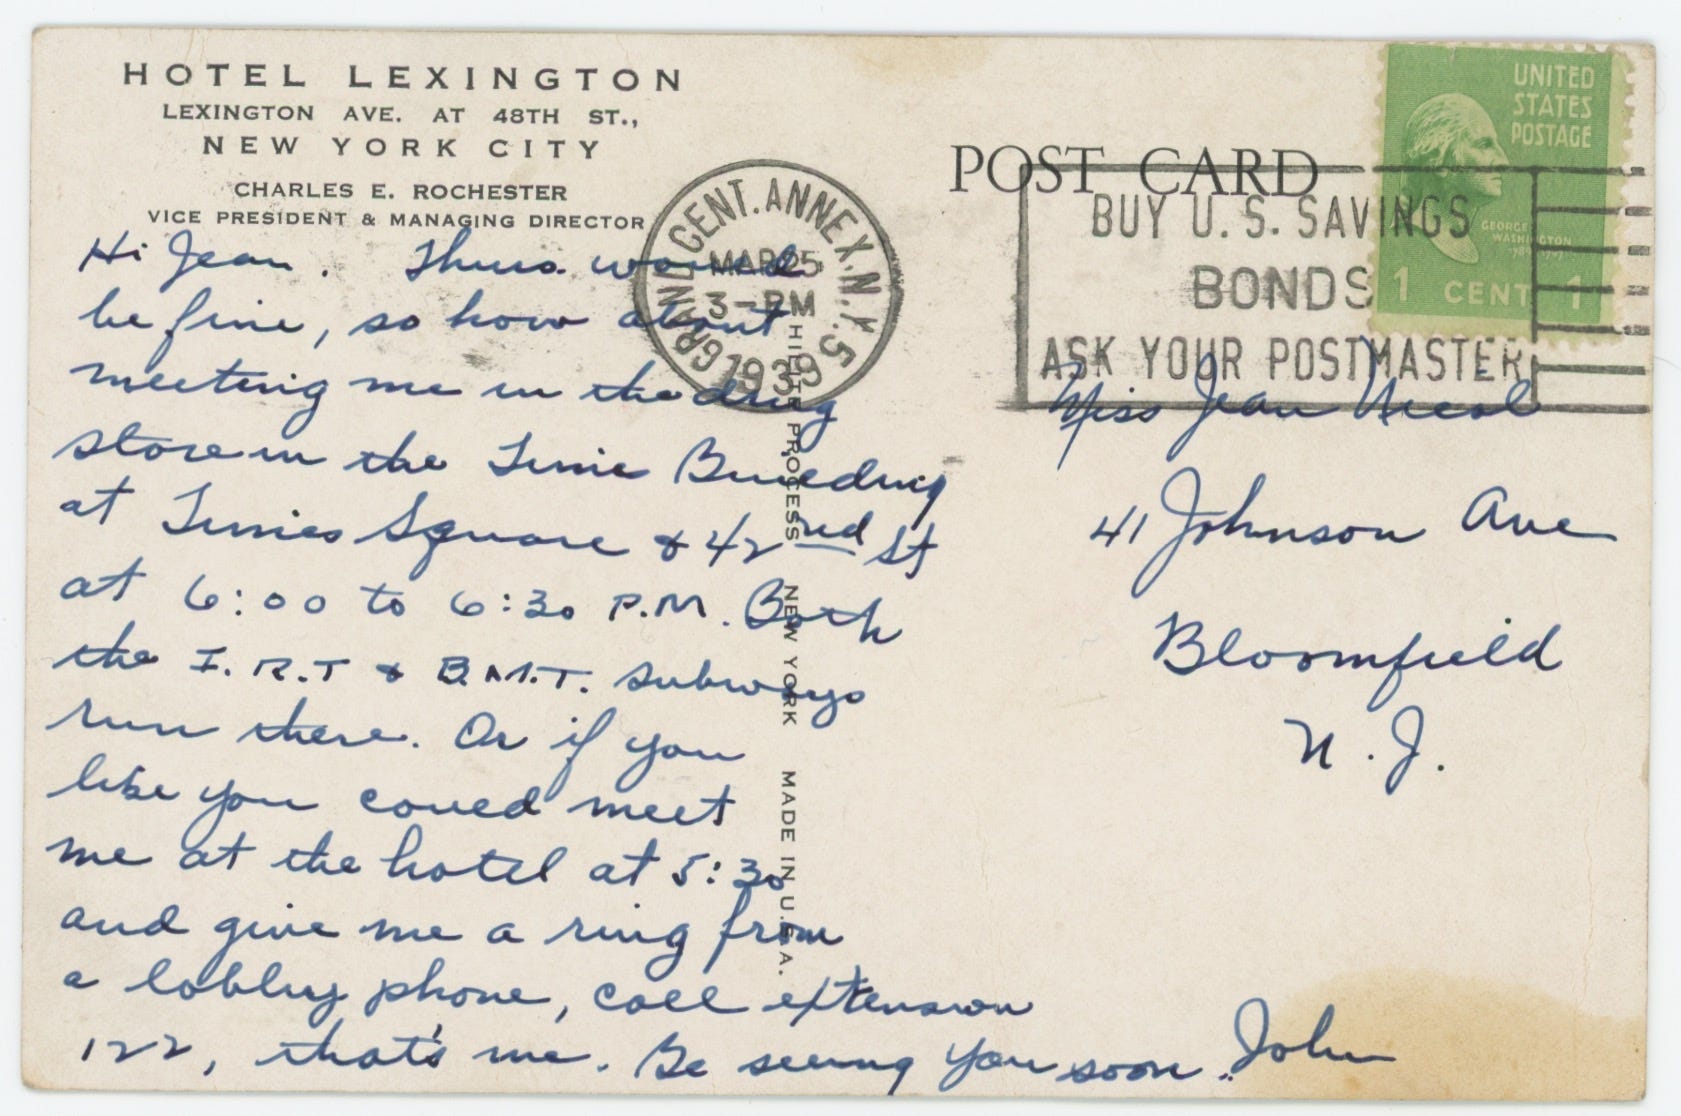 HOTEL LEXINGTON
LEXINGTON AVE. AT 48TH ST.,
NEW YORK CITY
CHARLES E. ROCHESTER
VICE PRESIDENT & MANAGING DIRECTOR
Hi Jean. Thurs. would
be fine, so how about
meeting me in the drug
store in the Time Building
at Times Square & 42nd St
at 6:00 to 6:30 P.M. Both
the I.R.T & B.M.T. subways
run there. Or if you
like you could meet
me at the hotel at 5:30
and give me a ring from
a lobby phone, call extension
122, that's me. Be seeing you soon. John
GRAND CENT. ANNEX. N.Y. 5
MAR 25
3-PM
1939
HILITE PROCESS NEW YORK MADE IN U.S.A.
POST CARD
BUY U.S. SAVINGS
BONDS
ASK YOUR POSTMASTER
UNITED
STATES
POSTAGE
GEORGE
WASHINGTON
1 CENT 1
Miss Jean Nicol
41 Johnson Ave
Bloomfield
N.J.